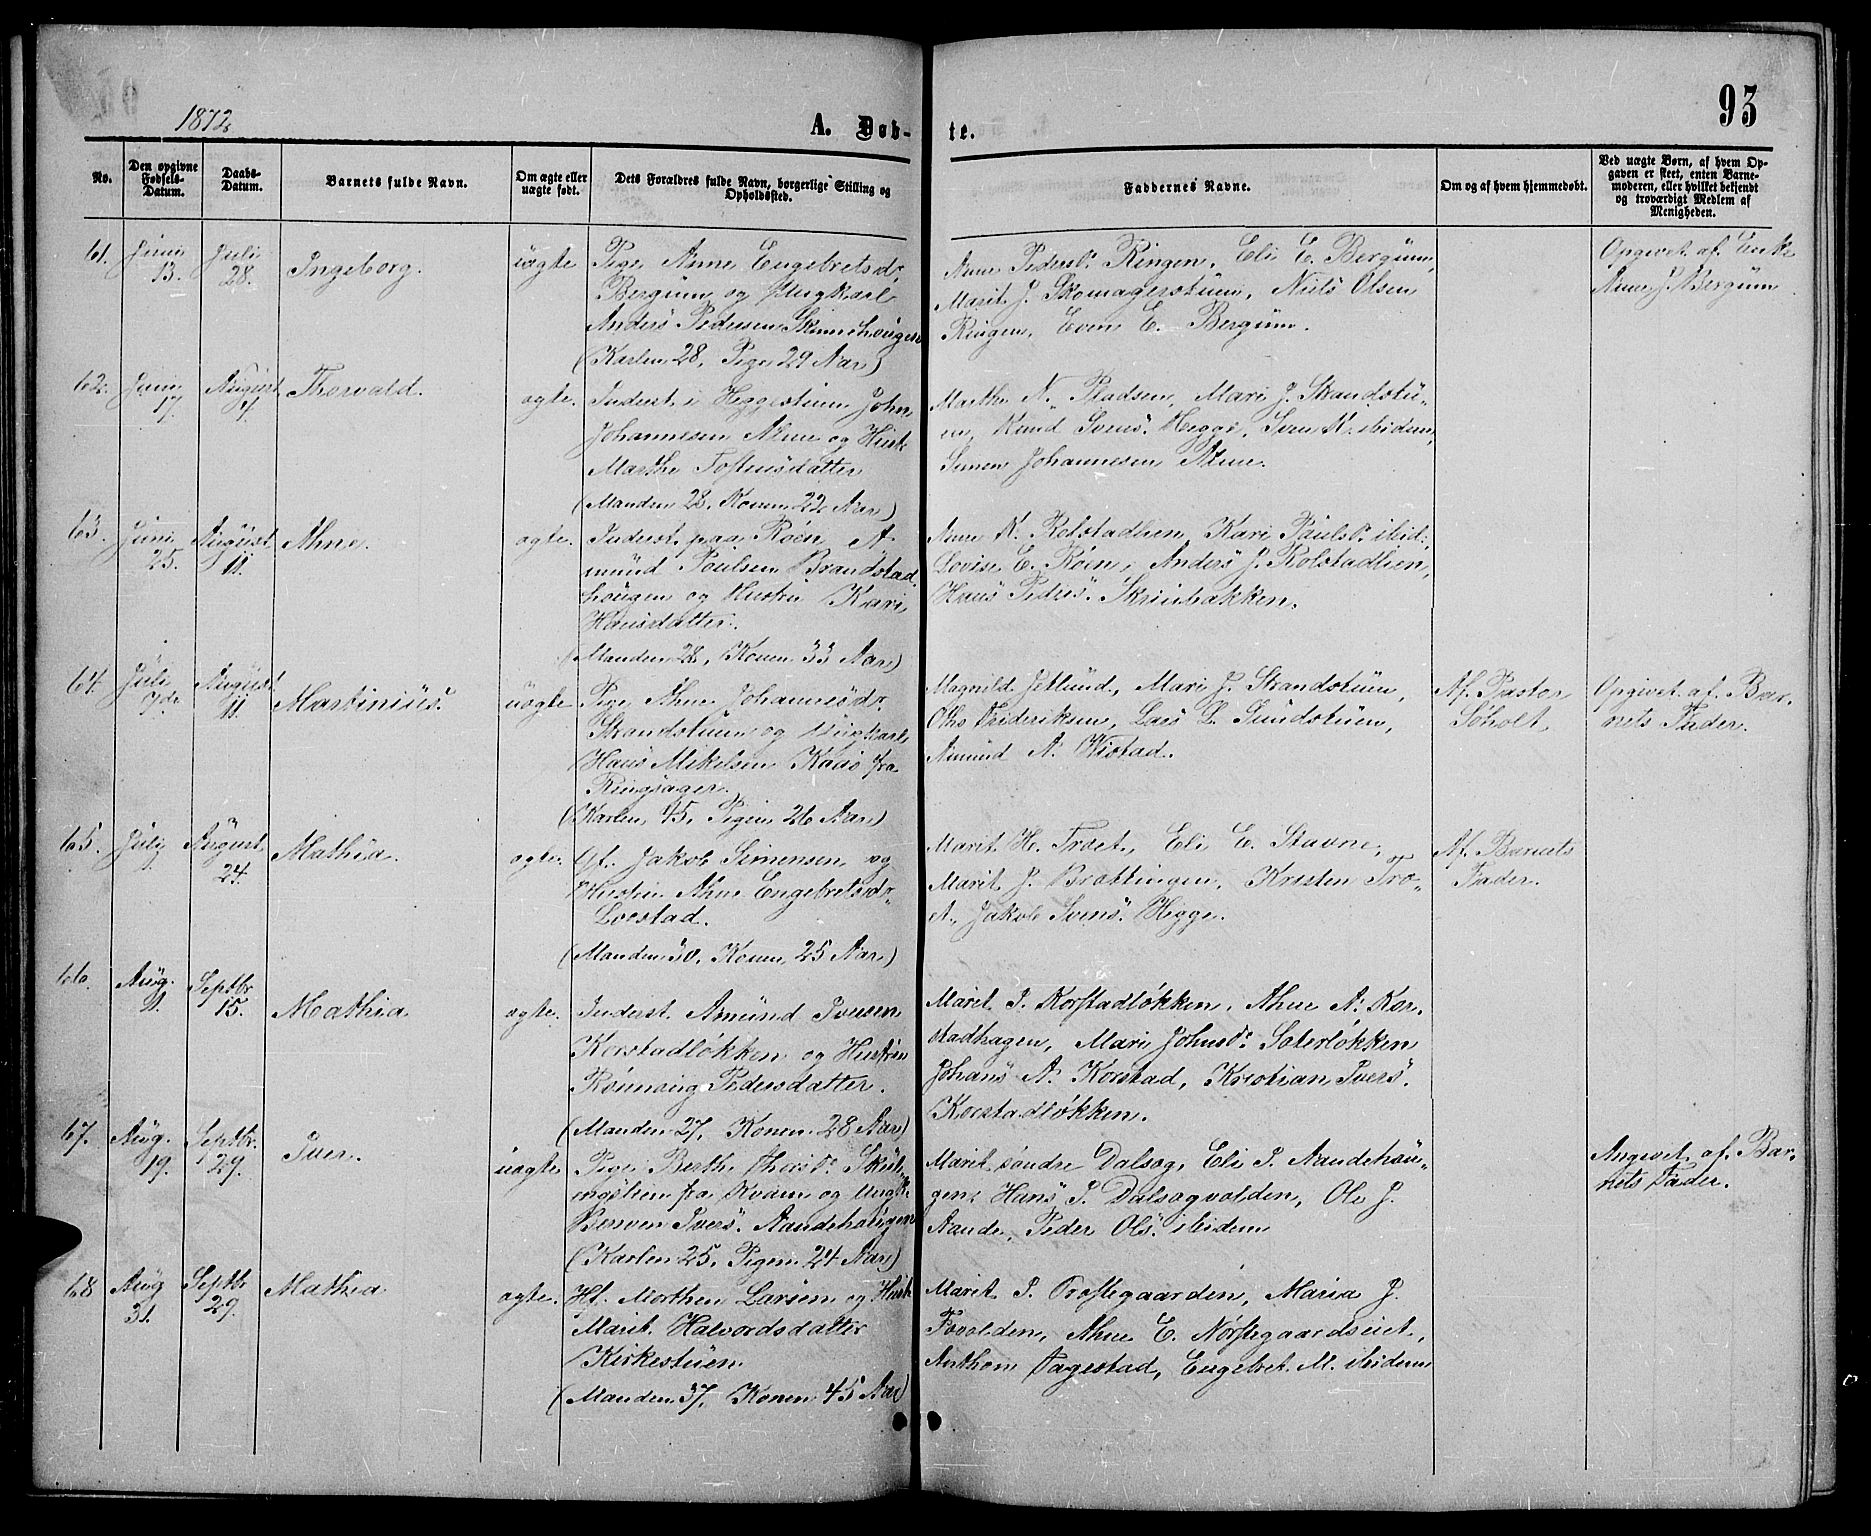 93
1872.
A. Døb-
te.
No.
Den opgivne
Fødsels-
Datum.
Daabs-
Datum.
Barnets fulde Navn.
Om ægte eller
uægte født.
Dets Forældres fulde Navn, borgerlige Stilling og
Opholdssted.
Faddernes Navne.
Om og af hvem hjemmedøbt.
Ved uægte Børn, af hvem Op-
gaven er skeet, enten Barne-
moderen, eller hvilket bekjendt
og troværdigt Medlem af
Menigheden.
61.
Juni
13.
Juli
28.
Ingeborg.
uægte
Pige Anne Engebretsdr
Bergum og Ungkarl
Anders Pedersen Skinnehougen
(Karlen 28, Pigen 29 Aar)
Anne Pedersdr Ringen, Eli E. Bergum,
Marit J. Skomagerstuen, Niels Olsen
Ringen, Even E. Bergum.
Opgivet af Enke
Anne J. Bergum
62.
Juni
17.
August
4.
Thorvald.
ægte.
Inderst i Heggestuen John
Johannesen Alme og Hust.
Marthe Tostensdatter
(Manden 28, Konen 22 Aar)
Marthe N. Pladsen, Mari J. Strandstu-
en, Knud Svens. Hegge, Sven K. ibidem,
Simen Johannesen Alme.
63.
Juni
25.
August
11.
Ahne.
ægte.
Inderst paa Røen A-
mund Poulsen Brandstad-
hougen og Hustru Kari
Hansdatter.
(Manden 28, Konen 33 Aar)
Anne K. Rolstadlien, Kari Paulsdr ibid.,
Lovise E. Røen, Anders J. Rolstadlien,
Hans Peders. Skrinbakken.
64.
Juli
7de
August
11.
Martinius.
uægte
Pige Ahne Johannesdr
Strandstuen og Ungkarl
Hans Mikelsen Kaas fra
Ringsager.
(Karlen 45, Pigen 26 Aar)
Magnild Jetlund, Mari J. Strandstuen,
Ole Frideriksen, Lars L. Sundstuen,
Amund A. Kistad.
Af Pastor
Søholt.
Opgivet af Bar-
nets Fader.
65.
Juli
August
24.
Mathia.
ægte.
Gf. Jakob Simensen og
Hustru Ahne Engebretsdr
Lostad.
(Manden 30, Konen 25 Aar)
Marit H. Troet, Eli E. Stavne,
Marit J. Brattingen, Kristen Tro-
et, Jakob Svens. Hegge.
Af Barnets
Fader.
66.
Aug.
Septbr
15.
Mathia
ægte.
Inderst Amund Iversen
Korstadløkken og Hustru
Rønnaug Pedersdatter.
(Manden 27, Konen 28 Aar)
Marit I. Korstadløkken, Ahne A. Kor-
stadhagen, Mari Johnsdr Soterløkken
Johans A. Korstad, Kristian Ivers.
Korstadløkken.
67.
Aug.
19.
Septbr.
29.
Iver.
uægte
Pige Berthe Thosdr Skut-
fra Kvam og Ungk.
Ivers. Aandehougen
(Karlen 25, Pigen 24 Aar)
Marit søndre Dalsog, Eli I. Aandehou-
gen, Hans P. Dalsogvolden, Ole J.
Aande, Peder Ols. ibidem
Angivet af Bar-
nets Fader.
68
Aug
31.
Septbr
29.
Mathia
ægte.
Hf. Morthen Larsen og Hust.
Marit Halvordsdatter
Kirkestuen
(Manden 37, Konen 45 Aar)
Marit I. Prestegaarden, Maria J.
Fovolden, Ahne E. Nørstegaardseiet,
Anthon Fagestad, Engebret M. ibidem